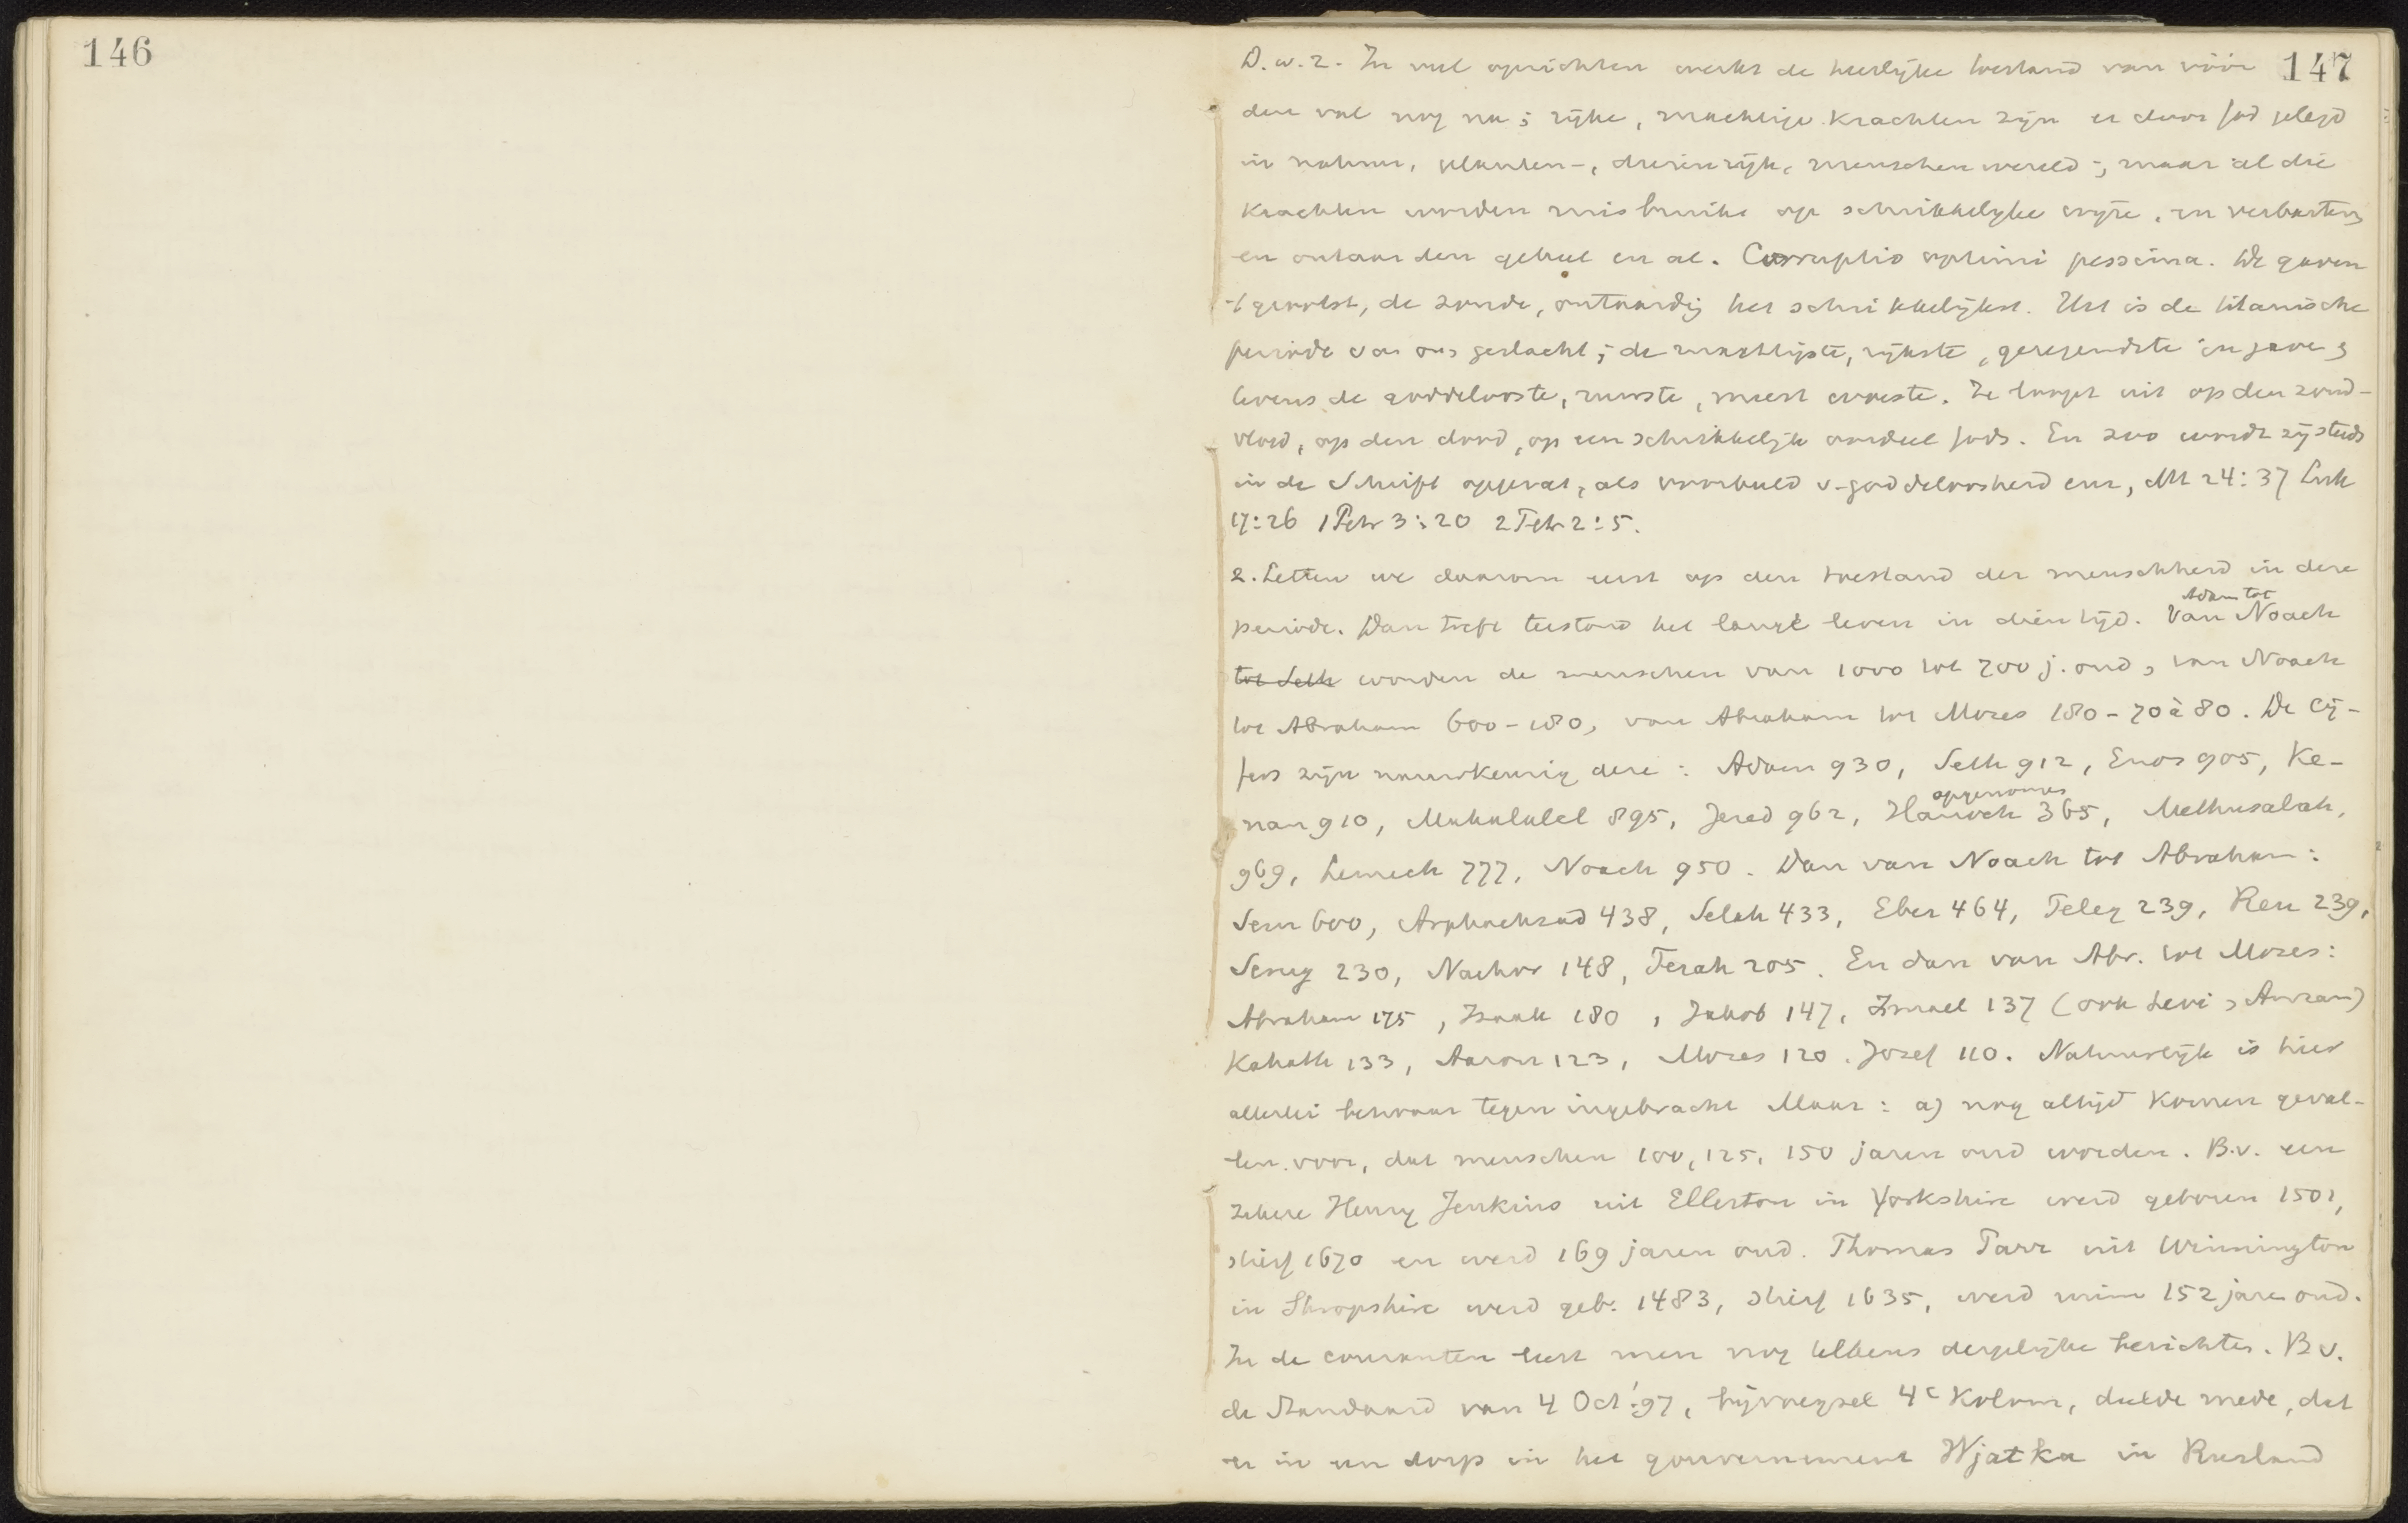 146
147
D.w.z. In veel opzichten werkt de heerlijke toestand van vóór
den val nog na; rijke, machtige krachten zijn er door God gelegd
in natuur, planten-, dierenrijk, menschenwereld; maar al die
krachten worden misbruikt op schrikkelyke wyze, en verbasteren
en ontaarden geheel en al. Corruptio optimi pessima. De gaven
't grootst, de zonde, ontaardig het schrikkelijkst. Het is de titanische
periode van ons geslacht; de machtigste, rijkste, gezegendste in gaven
tevens de goddelooste, ruwste, meest woeste. Ze loopt uit op den zond-
vloed, op den dood, op een schrikkelijk oordeel Gods. En zoo wordt zij steeds
in de Schrift opgevat, als voorbeeld v. goddeloosheid enz, Mt 24:37 Luk
17:26 1 Petr 3:20 2 Petr 2:5.
2. Letten we daarom eerst op den toestand der menschheid in deze
periode. Dan treft terstond het lange leven in dien tijd. Van Adam tot Noach
tot Seth worden de menschen van 1000 tot 700 j. oud, van Noach
tot Abraham 600-180, van Abraham tot Mozes 180-70 à 80. De cij-
fers zijn nauwkeurig deze: Adam 930, Seth 912, Enos 905, Ke-
nan 910, Mahalalel 895, Jered 962, Hanoch opgenomen 365, Methusalah,
969, Lemech 777, Noach 950. Dan van Noach tot Abraham:
Sem 600, Arphachsad 438, Selah 433, Eber 464, Peleg 239, Reu 239,
Serug 230, Nachor 148, Terah 205. En dan van Abr. tot Mozes:
Abraham 175, Izaak 180, Jakob 147, Ismael 137 (ook Levi, Amram)
Kahath 133, Aaron 123, Mozes 120. Jozef 110. Natuurlijk is hier
allerlei bezwaar tegen ingebracht Maar: a) nog altijd komen geval-
len voor, dat menschen 100, 125, 150 jaren oud worden. B.v. een
zekere Henry Jenkins uit Ellerton in Yorkshire werd geboren 1501,
stierf 1670 en werd 169 jaren oud. Thomas Parr uit Winnington
in Shropshire werd geb. 1483, stierf 1635, werd ruim 152 jare oud.
In de couranten leest men nog telkens dergelijke berichten. B v.
de Standaard van 4 Oct '97, bijvoegsel 4e kolom, deelde mede, dat
er in een dorp in het gouvernement Wjatka in Rusland